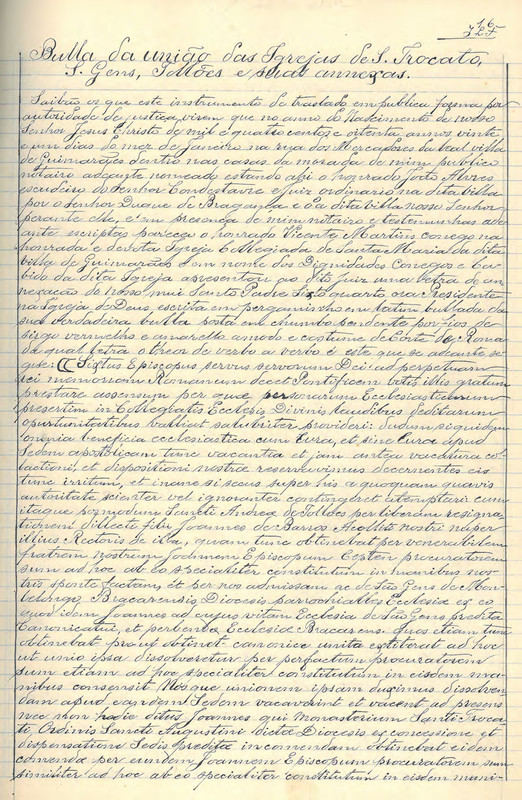 16
Bulla da união das Igrejas de S. Trocato,
S. Gens, Tolões e suas annexas.
Saibão os que este instrumento de traslado em publica forma por
autoridade de justiça virem que no anno do Nascimento de nosso
Senhor Jesus Christo de mil e quatro centos e oitenta annos vinte
e um dias do mez de Janeiro na rua dos Mercadores da leal villa
de Guimarães dentro nas casas da morada de mim publico
notario adeante nomeado estando ahi o honrado João Alvres
escudeiro do Senhor Condestavre e juiz ordinario na dita villa
por o Senhor Duque de Bragança e da dita villa nosso Senhor
perante elle, e em presença de mim notairo e testemunhas ade
ante escriptas pareceo o honrado Vicente Martins conego na
honrada e devota Igreja Collegiada de Santa Maria da dita
villa de Guimarães e em nome dos Dignidades Conegos e Ca-
bido da dita Igreja apresentou ao dito Juiz uma letra de an-
nexação do nosso mui Santo Padre Sixto quarto ora Presidente
na Igreja de Deus, escrita em pergaminho em latim bullada da
sua verdadeira bulla posta em chumbo pendente por fios de
sirgo vermelho e amarello a modo e costume de Corte de Roma
da qual letra o theor de verbo a verbo é este que se adeante se
gue: Sixtus Episcopus servus servorum Dei: ad perpetuam
rei memoriam Romanum decet Pontificem votis illis gratum
prestare assensum per quæ personarum Ecclesiasticarum
presertim in Collegiatis Ecclesiis Divinis laudibus deditarum
oportunitatibus valeat salubriter provideri: dudum siquidem
omnia beneficia ecclesiastica cum cura, et sine cura apud
Sedem apostolicam tunc vacantia et jam antea vacatura col-
lationi, et dispositioni nostræ reservavimus decernentes ex
tunc irritum, et inane si secus super his a quoquam quavis
autoritate scienter vel ignoranter contingeret attemptari cum
itaque postmodum Sancti Andreæ de Tolões per liberam resigna-
tionem dillecti filii Joannes de Barros Acoliti nostri nuper
illius Rectoris de illa, quam tunc obtinebat per venerabilem
fratrem nostrum Joannem Episcopum Cepten procuratorem
suum ad hoc ab eo specialiter constitutum in manibus nos-
tris sponte factam, et per nos admissam ac de São Gens de Mon-
telongo, Bracarensis Diocesis parrochialles Ecclesiæ ex eo
quod idem Joannes ad cujus vitam Ecclesia de São Gens predicta
Canonicatui, et perbendæ Ecclesiæ Bracarens. quos etiam tunc
obtinebat prout obtinet canonice unita extiterat ad hoc
ut unio ipsa dissolveretur per perfactum procuratorem
suum etiam ad hoc specialiter constitutum in eisdem ma-
nibus consensit Nosque unionem ipsam duximus dissolven
dam apud eandem Sedem vacaverint et vacent ad presens
nec non hodie dictus Joannes qui Monasterium Santi Troca-
ti Ordinis Sancti Augustini dictæ Diocesis ex concessione et
dispensatione Sedis predictæ in comendam obtinebat eidem
comendæ per eundem Joannem Episcopum procuratorem suum
similiter ad hoc ab eo specialiter constitutum in eisdem mani-